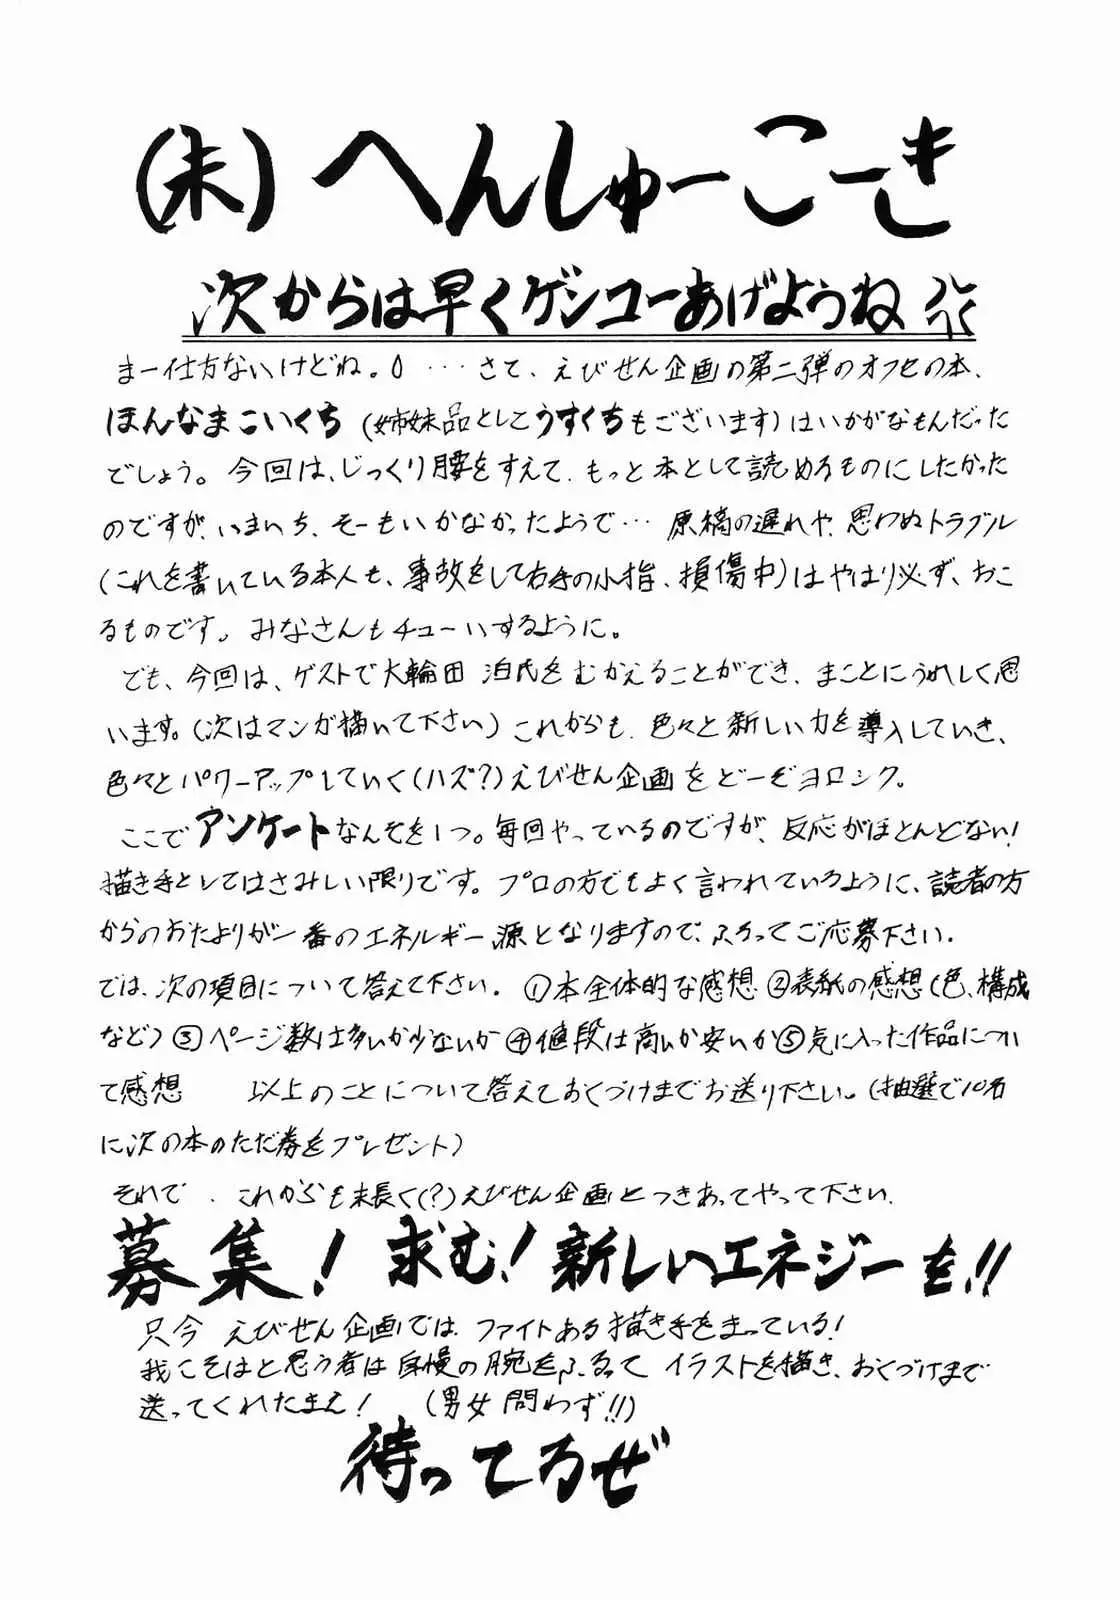 (末)へんしゅーこーき
次からは早くゲンコーあげようね
まー仕方ないけどね。 … さて、えびせん企画の第二弾のオフセの本、
ほんなまこいくち(姉妹品としてうすくちもございます)はいかがなもんだった
でしょう。今回は、じっくり腰をすえて、もっと本として読めるものにしたかった
のですが、いまいち、そーもいかなかったようで… 原稿の遅れや、思わぬトラブル
(これを書いている本人も、事故をして右手の小指、損傷中)はやはり必ず、おこ
るものです。みなさんもチューいするように。
でも、今回は、ゲストで大輪田 泊氏をむかえることができ、まことにうれしく思
います。(次はマンガ描いて下さい)これからも、色々と新しい力を導入していき、
色々とパワーアップしていく(ハズ?)えびせん企画をどーぞヨロシク。
ここでアンケートなんぞを1つ。毎回やっているのですが、反応がほとんどない!
描き手としてはさみしい限りです。プロの方でもよく言われているように、読者の方
からのおたよりが一番のエネルギー源となりますので、ふるってご応募下さい。
では、次の項目について答えて下さい。①本全体的な感想②表紙の感想(色、構成
など)③ページ数は多いか少ないか④値段は高いか安いか⑤気に入った作品につい
て感想 以上のことについて答えておくづけまでお送り下さい。(抽選で10名
に次の本のただ券をプレゼント)
それで、これからも末長く(?)えびせん企画とつきあってやって下さい。
募集! 求む! 新しいエネジーを!!
只今 えびせん企画では、ファイトある描き手をまっている!
我こそはと思う者は自慢の腕をふるって イラストを描き、おくづけまで
送ってくれたまえ! (男女問わず!!)
待ってるぜ